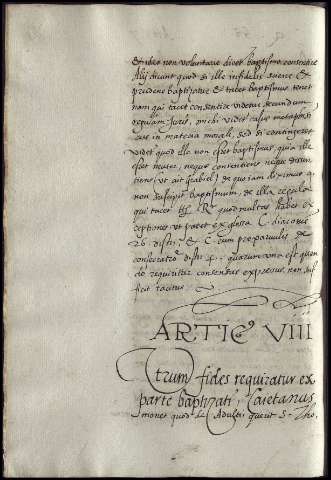 et ideo non voluntarie dicet baptismo consentire
Alij dicunt quod si ille infidelis sciens et
prudens baptizatur et tacet baptismus tenet
nam qui tacet consentire videtur secundum
regulam Juris, michi videt casus
in materia morali, sed si contingeret
videt quod ille non esset baptismus, quia ille
esset neuter, neque consentiens neque dissen
tiens (ut ait Gabriel) & quoniam diximus q
non suscipit baptismum, & illa regula
qui tacet & R. quod multas habet ex
ceptiones ut patet ex glossa C. diaconus
26. disti. & C. cum pro paruulis de
consecratio disti 4. quarum una est quan
do requiritur consensus expressus, non suf
ficit tacitus.
ARTIC VIII
Utrum fides requiratur ex
parte baptizati, Caietanus
monet quod de Adultis querit S. Tho.